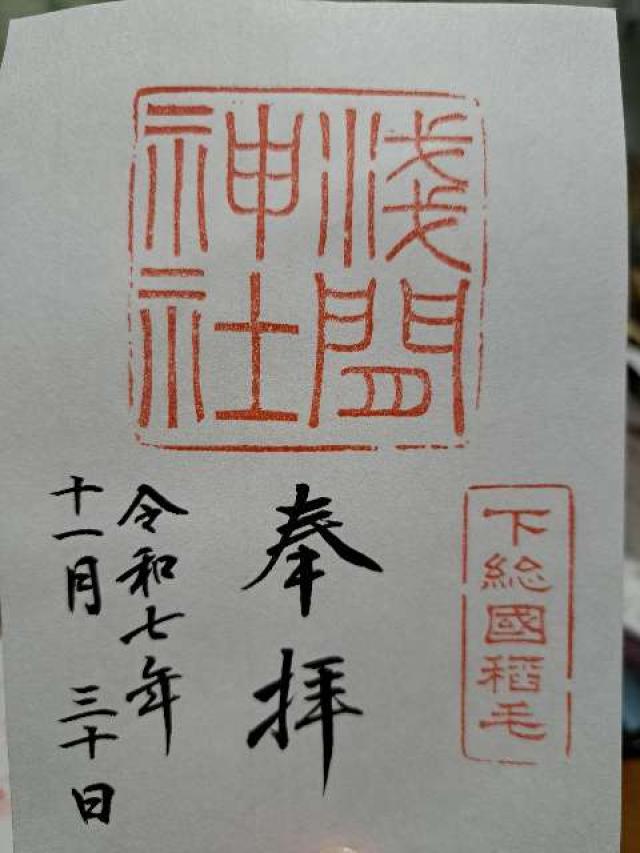 浅間
神社
下総國稲毛
奉拝
令和七年
十一月 三十日